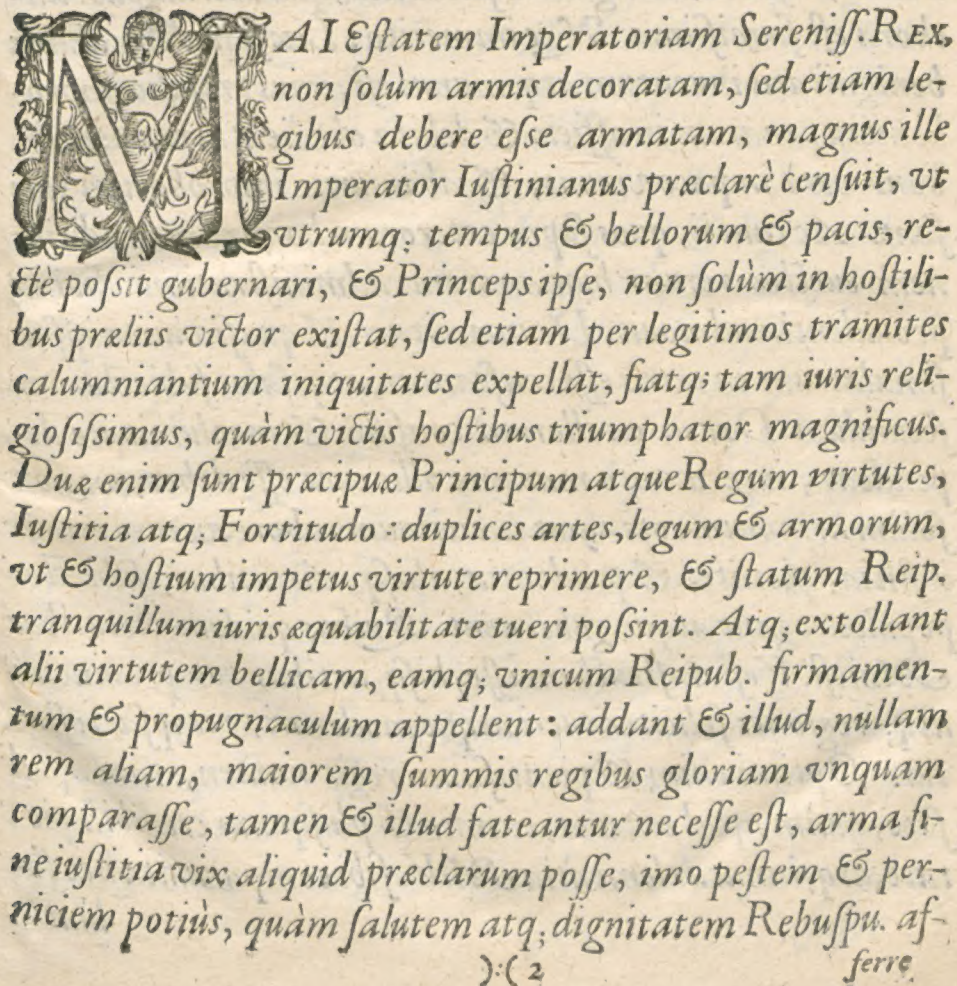 MAIEſtatem Imperatoriam Sereniſſ. REX,
non ſolùm armis decoratam, ſed etiam le-
gibus debere eſse armatam, magnus ille
Imperator Iuſtinianus præclarè cenſuit, vt
vtrumq; tempus & bellorum & pacis, re-
ctè poſsit gubernari, & Princeps ipſe, non ſolùm in hoſtili-
bus præliis victor exiſtat, ſed etiam per legitimos tramites
calumniantium iniquitates expellat, fiatq; tam iuris reli-
gioſiſsimus, quàm victis hoſtibus triumphator magnificus.
Duæ enim ſunt præcipuæ Principum atque Regum virtutes,
Iuſtitia atq; Fortitudo: duplices artes, legum & armorum,
vt & hoſtium impetus virtute reprimere, & ſtatum Reip.
tranquillum iuris æquabilitate tueri poſsint. Atq; extollant
alii virtutem bellicam, eamq; vnicum Reipub. firmamen-
tum & propugnaculum appellent: addant & illud, nullam
rem aliam, maiorem ſummis regibus gloriam vnquam
comparaſſe, tamen & illud fateantur neceſſe eſt, arma ſi-
ne iuſtitia vix aliquid præclarum poſſe, imo peſtem & per-
niciem potiùs, quàm ſalutem atq; dignitatem Rebuſpu. af-
):( 2 ferre